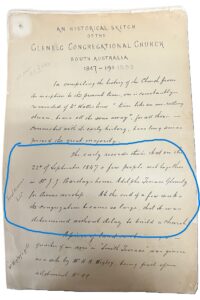 AN HISTORICAL SKETCH
OF THE
GLENELG CONGREGATIONAL CHURCH
SOUTH AUSTRALIA
1847 - 19
In compiling the history of the Church from
its inception to the present time, one is constantly
reminded of D. Watts lines "Time like an ever rolling
stream bears all its sons away", for all those
connected with its early history, have long since
joined the great majority.
The early records show that on the
22nd of September 1847 a few people met together
at Mr J. J. Barclays house Adelphi Terrace Glenelg
for divine worship. At the end of a few weeks
the congregation became so large that it was
determined without delay to build a Church.
A piece of land
quarter of an acre in South Terrace was given
as a site by Mr W. R. Wigley, being part of an
allotment No